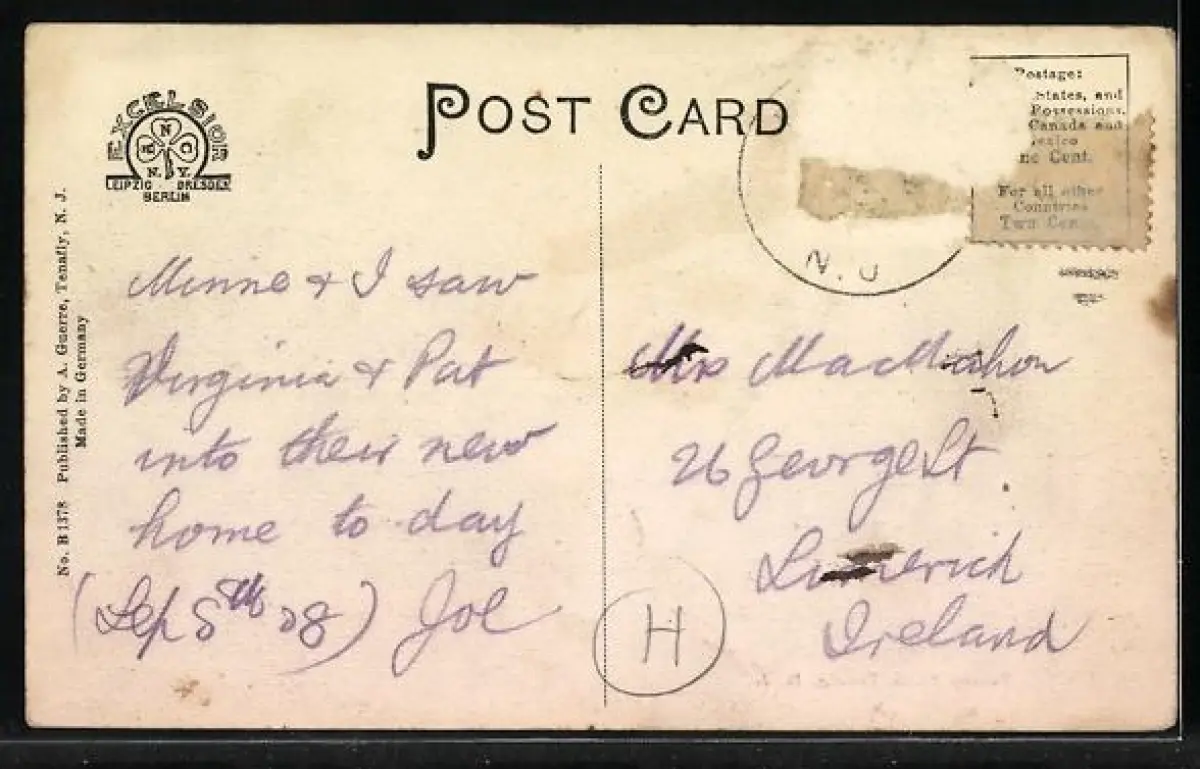 EXCELSIOR
N
E C
N. Y.
LEIPZIG DRESDEN
BERLIN
POST CARD
Postage:
States, and
Possessions.
Canada and
Mexico
ne Cent.
For all other
Countries
Two Cen
N. J
No. B 1378 Published by A. Guerre, Tenafly, N. J.
Made in Germany
Minne & I saw
Virginia & Pat
into their new
home to day
(Sep 8th 08) Joe
Mrs MacMahon
26 George St
Limerick
Ireland
H